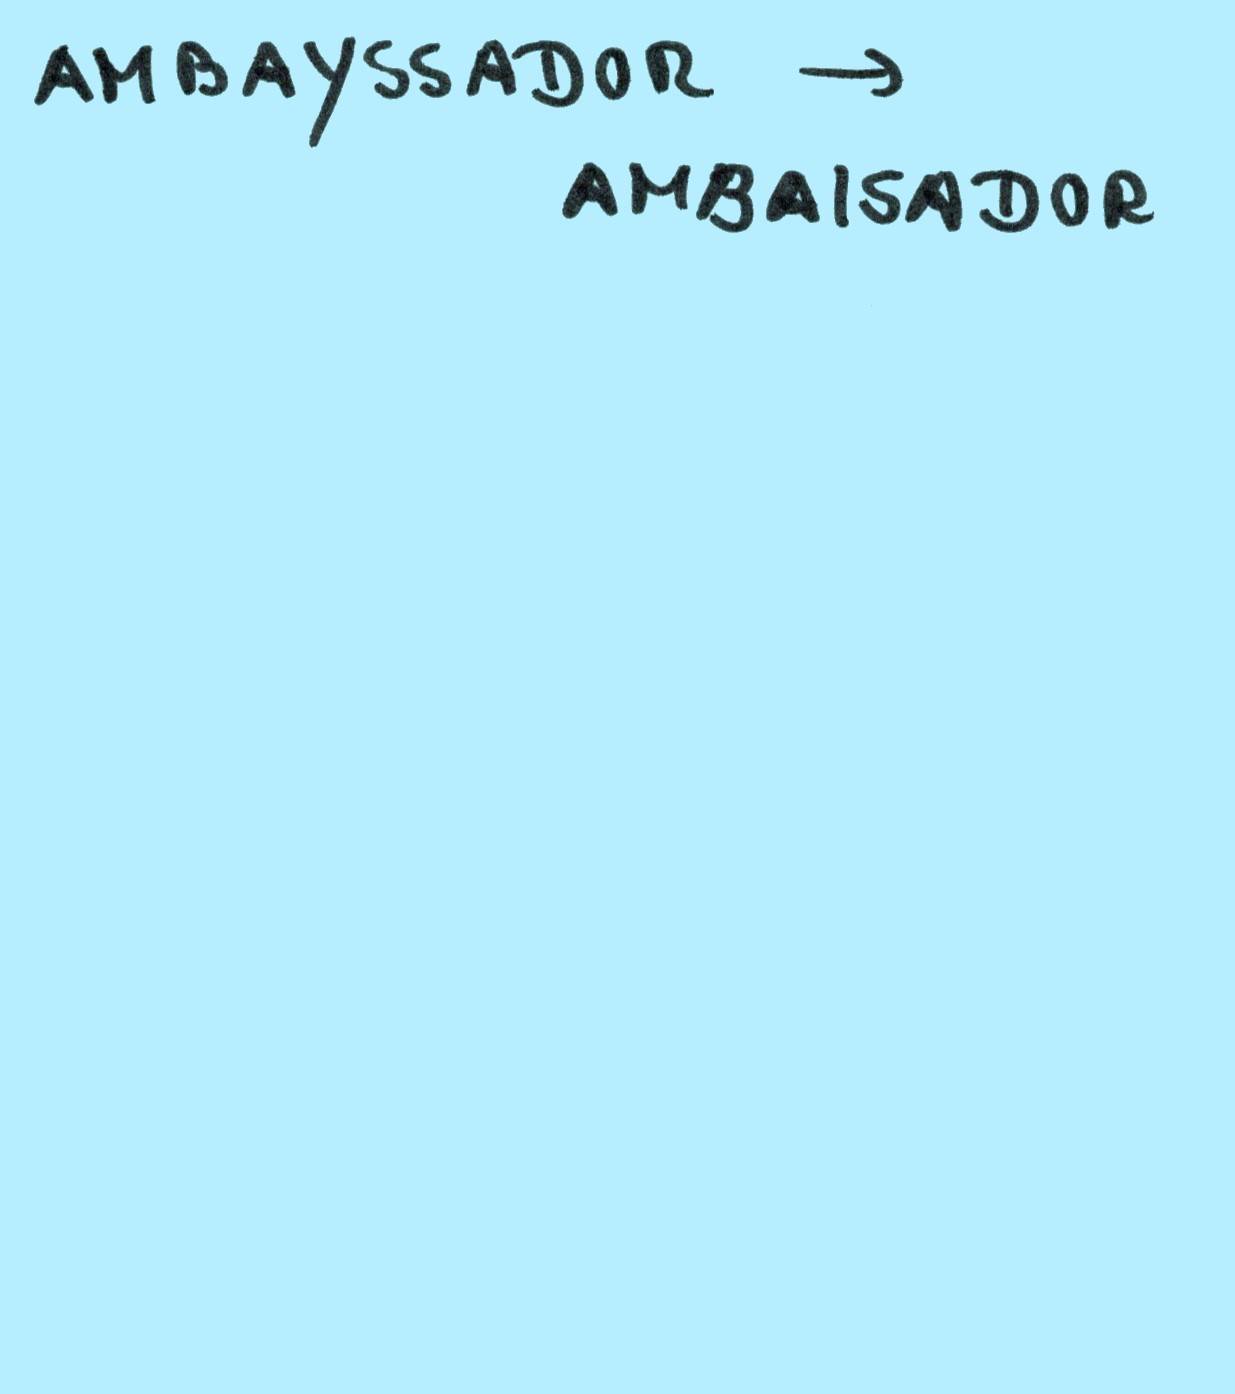 AMBAYSSADOR →
AMBAISADOR